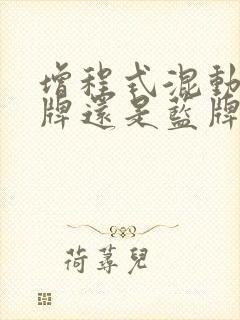 增程式混動
牌還是藍牌
荷蕁兒